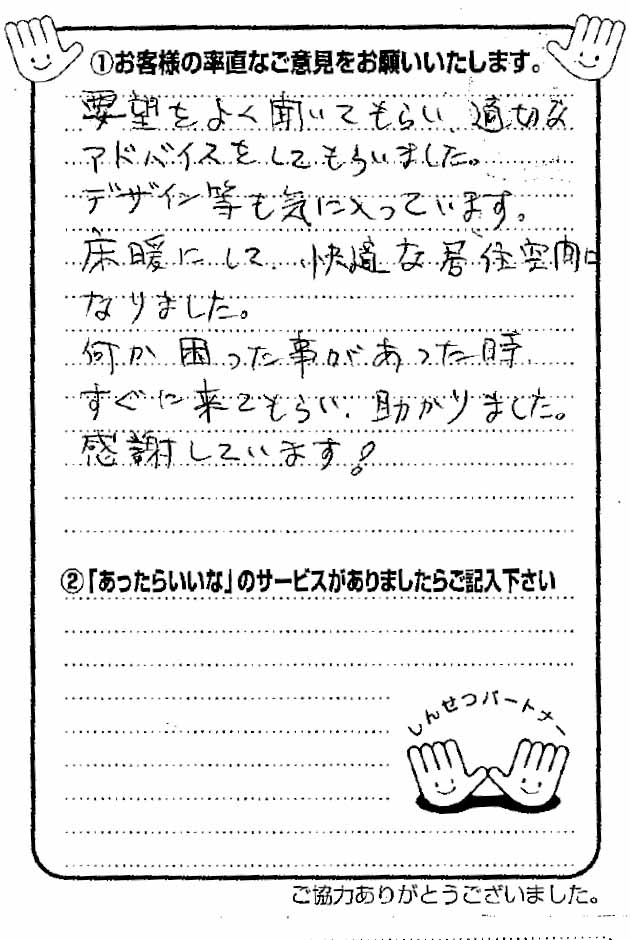 ①お客様の率直なご意見をお願いいたします。
要望をよく聞いてもらい、適切な
アドバイスをしてもらいました。
デザイン等も気に入っています。
床暖にして、快適な居住空間に
なりました。
何か困った事があった時、
すぐに来てもらい、助かりました。
感謝しています!
②「あったらいいな」のサービスがありましたらご記入下さい
しんせつパートナー
ご協力ありがとうございました。